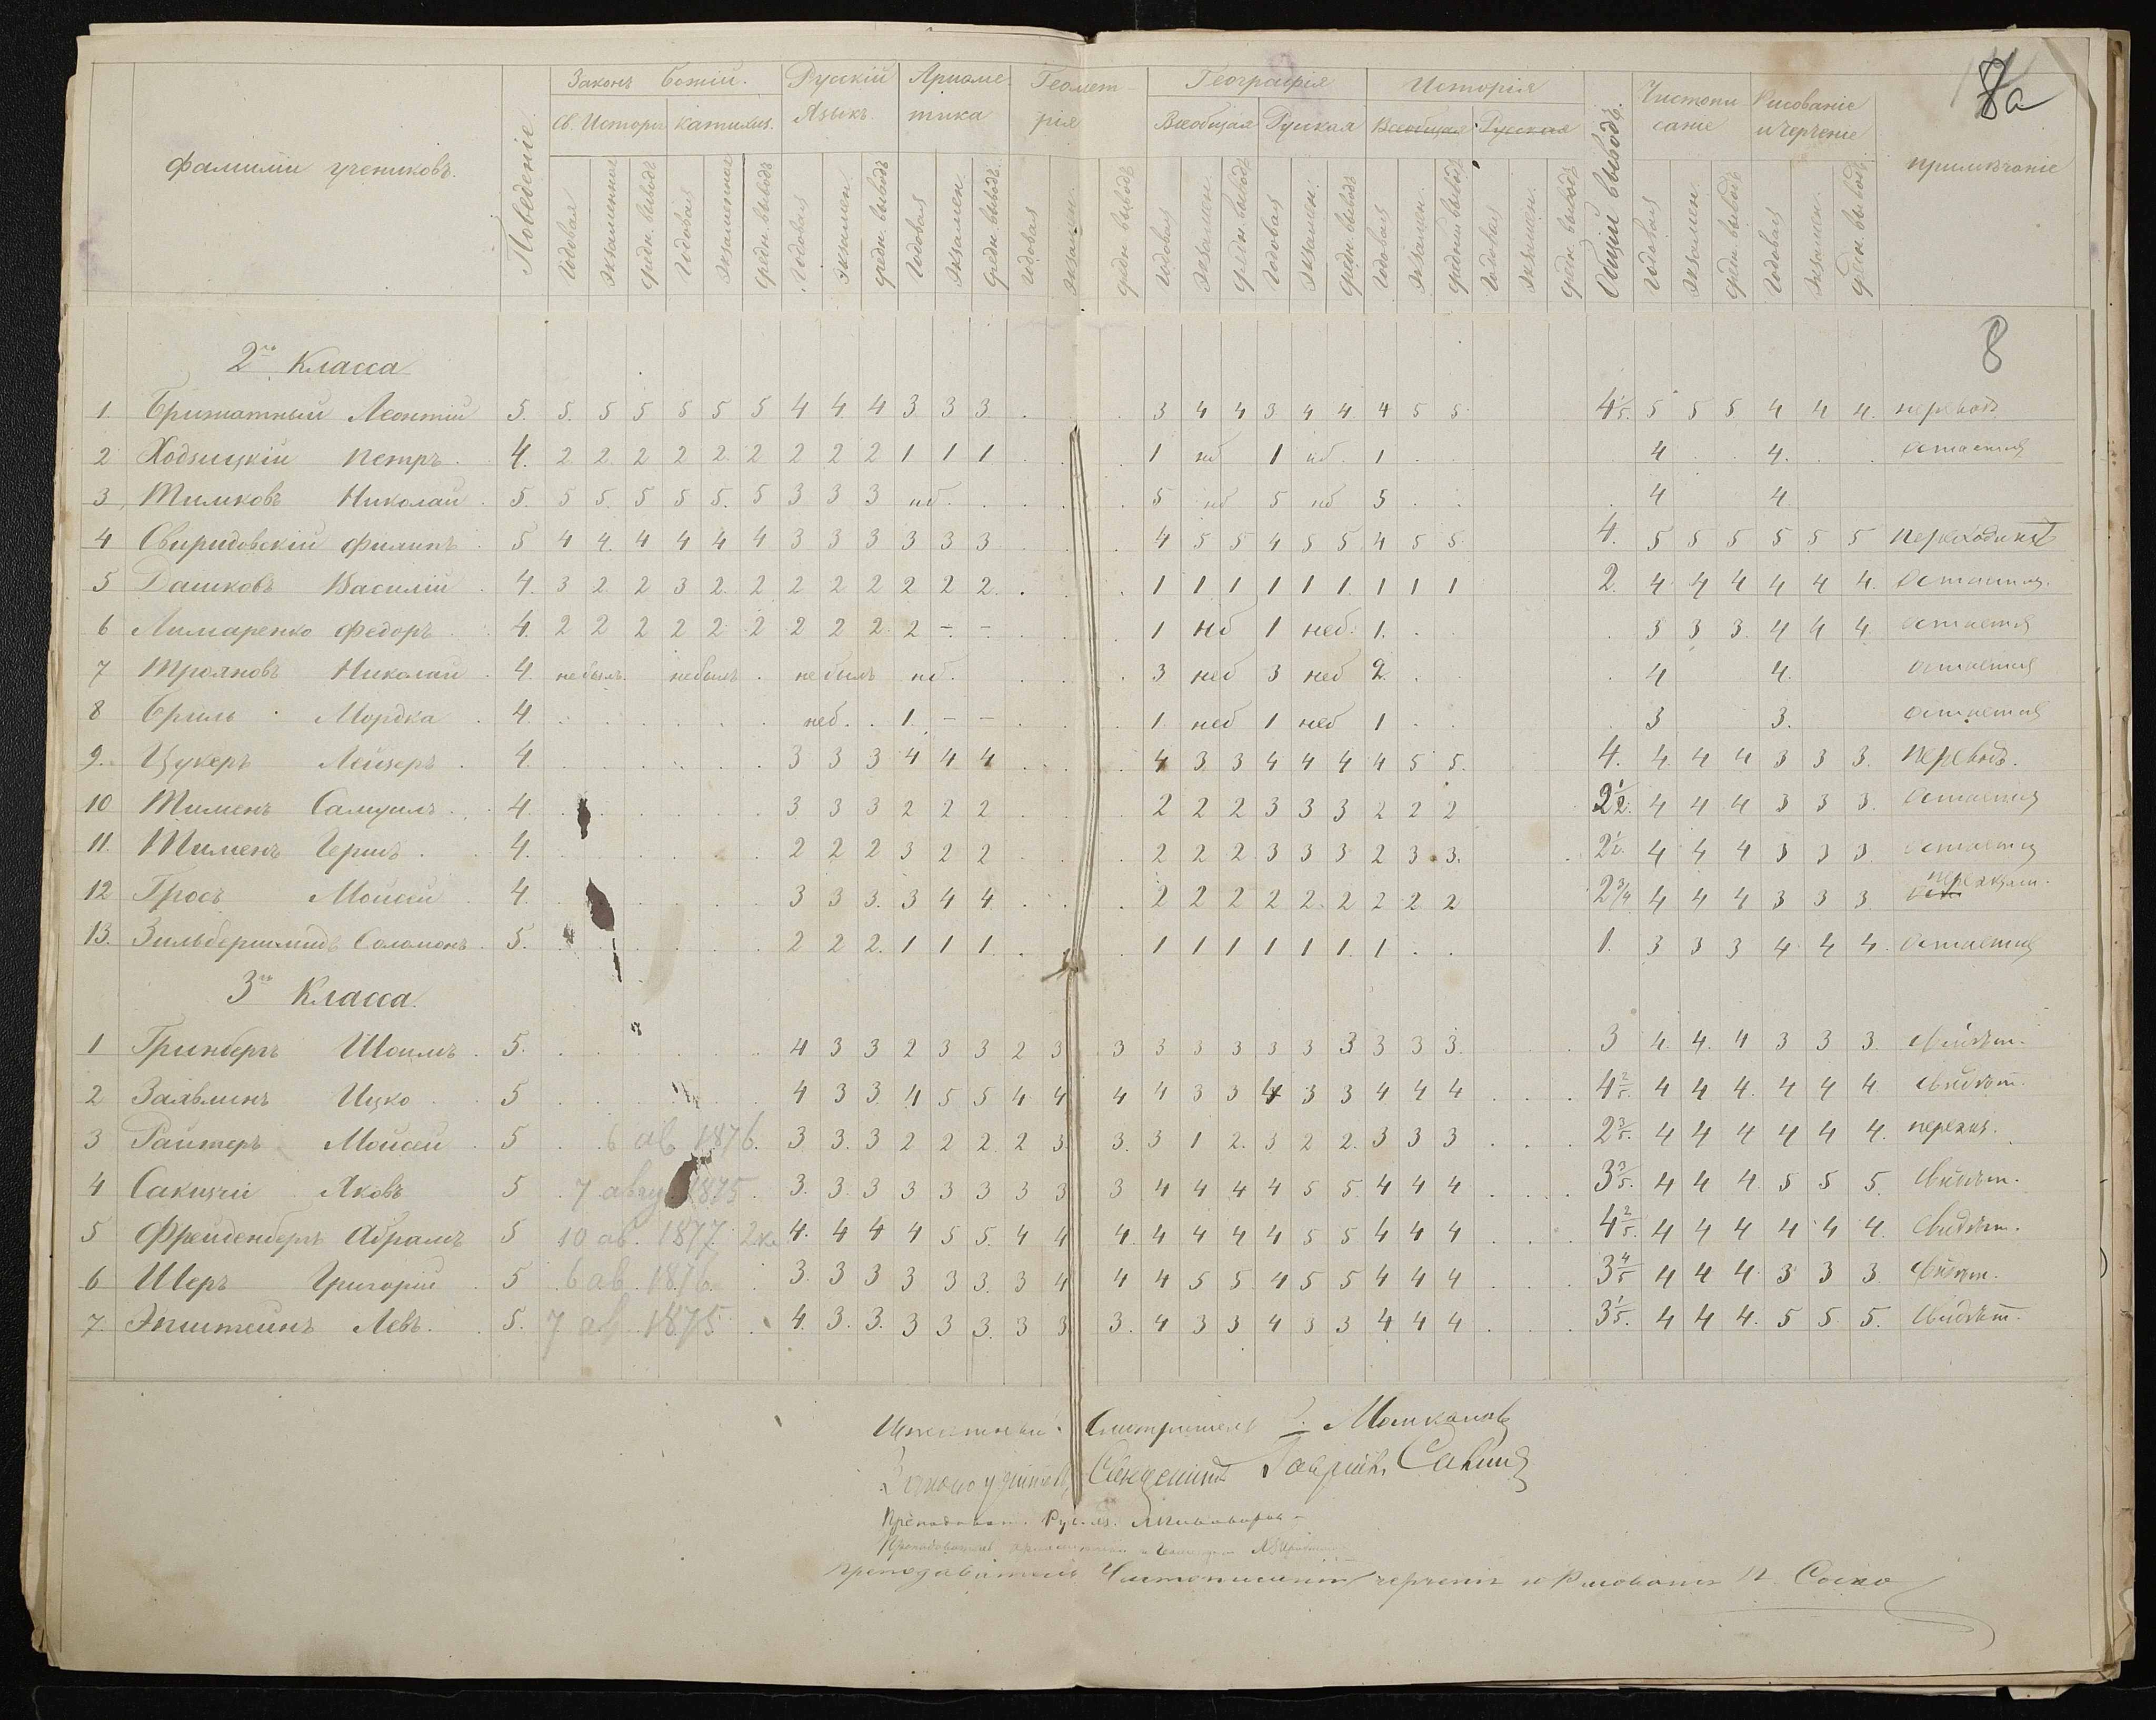 8а
Фамилии учениковъ.
Поведеніе
Законъ Божій.
Русскій Языкъ.
Ариѳметика
Геометрія
Географія
Исторія
Общій выводъ.
Чистописаніе
Рисованіе и черченіе
Примѣчаніе
Св. Исторія Катихиз.
Всеобщая Русская Всеобщая Русская
Годовая Экзаменная Средн. выводъ Годовая Экзаменная Средн. выводъ Годовая Экзамен. Средн. выводъ Годовая Экзамен. Средн. выводъ Годовая Экзамен. Средн. выводъ Годовая Экзамен. Средн. выводъ Годовая Экзамен. Средн. выводъ Годовая Экзамен. Средній выводъ Годовая Экзамен. Средн. выводъ Годовая Экзамен. Средн. выводъ Годовая Экзамен. Средн. вывод
8
2го Класса
1 Леонтій 5. 5. 5 5 5 5 5 4 4. 4 3 3 3 3 4 4 3 4 4. 4 5 5 4 1/5. 5 5 5. 4 4 4. перевод
2 Ходзицкій Петръ 4. 2 2 2 2 2 2 2 2 2 1 1 1 1 нб 1 нб. 1 4 4. остается
3 Тимковъ Николай 5. 5 5. 5 5 5. 5 3 3 3 нб. 5 нб 5 нб 5 4 4
4 Свиридовскій Филипъ 5 4 4. 4 4 4 4 3 3 3 3 3 3 4 5 5 4 5 5 4 5 5 4. 5 5 5 5 5 5 переходитъ
5 Дашковъ Василій 4. 3 2 2 3 2. 2 2 2 2 2 2 2. 1 1 1 1 1 1. 1 1 1 2. 4 4 4 4 4 4. остается.
6 Лимаренко Федоръ 4. 2 2 2 2 2 2 2 2 2. 2 – – 1 нб 1 неб. 1. 3 3 3. 4 4 4. остается
7 Трояновъ Николай 4. небылъ небылъ небылъ нб. 3 неб 3 неб 2. 4 4. остается
8 Бриль Мордка 4. неб. 1. – – 1. неб 1 неб 1 3 3. остается
9. Цукеръ Лейзеръ 4. 3 3 3 4 4 4 4 3 3 4 4 4 4 5 5. 4. 4. 4 4 3 3 3. Переводъ.
10 Тименъ Самуилъ 4. 3 3 3 2 2 2 2 2 2 3 3 3 2 2 2 2 1/2. 4 4 4 3 3 3. остается
11. Тименъ Гершъ 4. 2 2 2 3 2 2 2 2 2. 3 3 3 2 3 3. 2 1/2. 4 4 4 3 3 3. остается
12 Гросъ Моисей 4. 3 3 3. 3 4 4 2 2 2 2 2. 2 2 2 2 2 3/4 4 4 4 3 3 3.
13. Соломонъ 5. 2 2 2. 1 1 1 1 1 1 1 1 1. 1 1. 3 3 3 4 4 4. остается
3го Класса
1 Гринбергъ Шоимъ 5. 4 3 3 2 3 3 2 3 3 3 3 3 3 3 3 3 3 3. 3 4. 4. 4 3 3 3. свидѣт.
2 Заявлинъ Ицко 5 4 3 3. 4 5 5 4 4 4 4 3 3 4 3 3 4 4 4 4 2/5. 4 4 4. 4 4 4. свидѣт.
3 Райтеръ Моисей 5 6 ав 1876. 3. 3. 3 2 2 2. 2 3 3. 3 1 2. 3 2 2. 3 3 3 2 3/5. 4 4 4 4 4 4.
4 Яковъ 5 7 авгу 1875 3. 3. 3 3 3 3 3 3 3 4 4 4 4 5 5. 4 4 4 3 3/5. 4 4 4. 5 5 5. свидѣт.
5 Фрейденбергъ Абрамъ 5 10 ав. 1877. 2 кл 4. 4 4 4 5 5. 4 4 4. 4 4 4 4 5 5 4 4 4 4 2/5. 4 4 4 4 4 4. свидѣт.
6 Шеръ Григорій 5 6 ав. 1876. 3. 3 3 3 3 3. 3 4 4 4 5 5. 4 5 5 4 4 4 3 4/5 4 4 4. 3 3 3. свидѣт.
7. Эпштейнъ Левъ. 5. 7 ав. 1875 4. 3. 3. 3 3 3. 3 3 3. 4 3 3 4 3 3 4 4 4 3 1/5. 4 4 4. 5 5. 5. свидѣт.
Смотритель
Законоучитель Священникъ Гавріилъ Савицк
Преподават. Рус. яз.
преподаватель Чистописанія черченія и Рисованія П. Соско